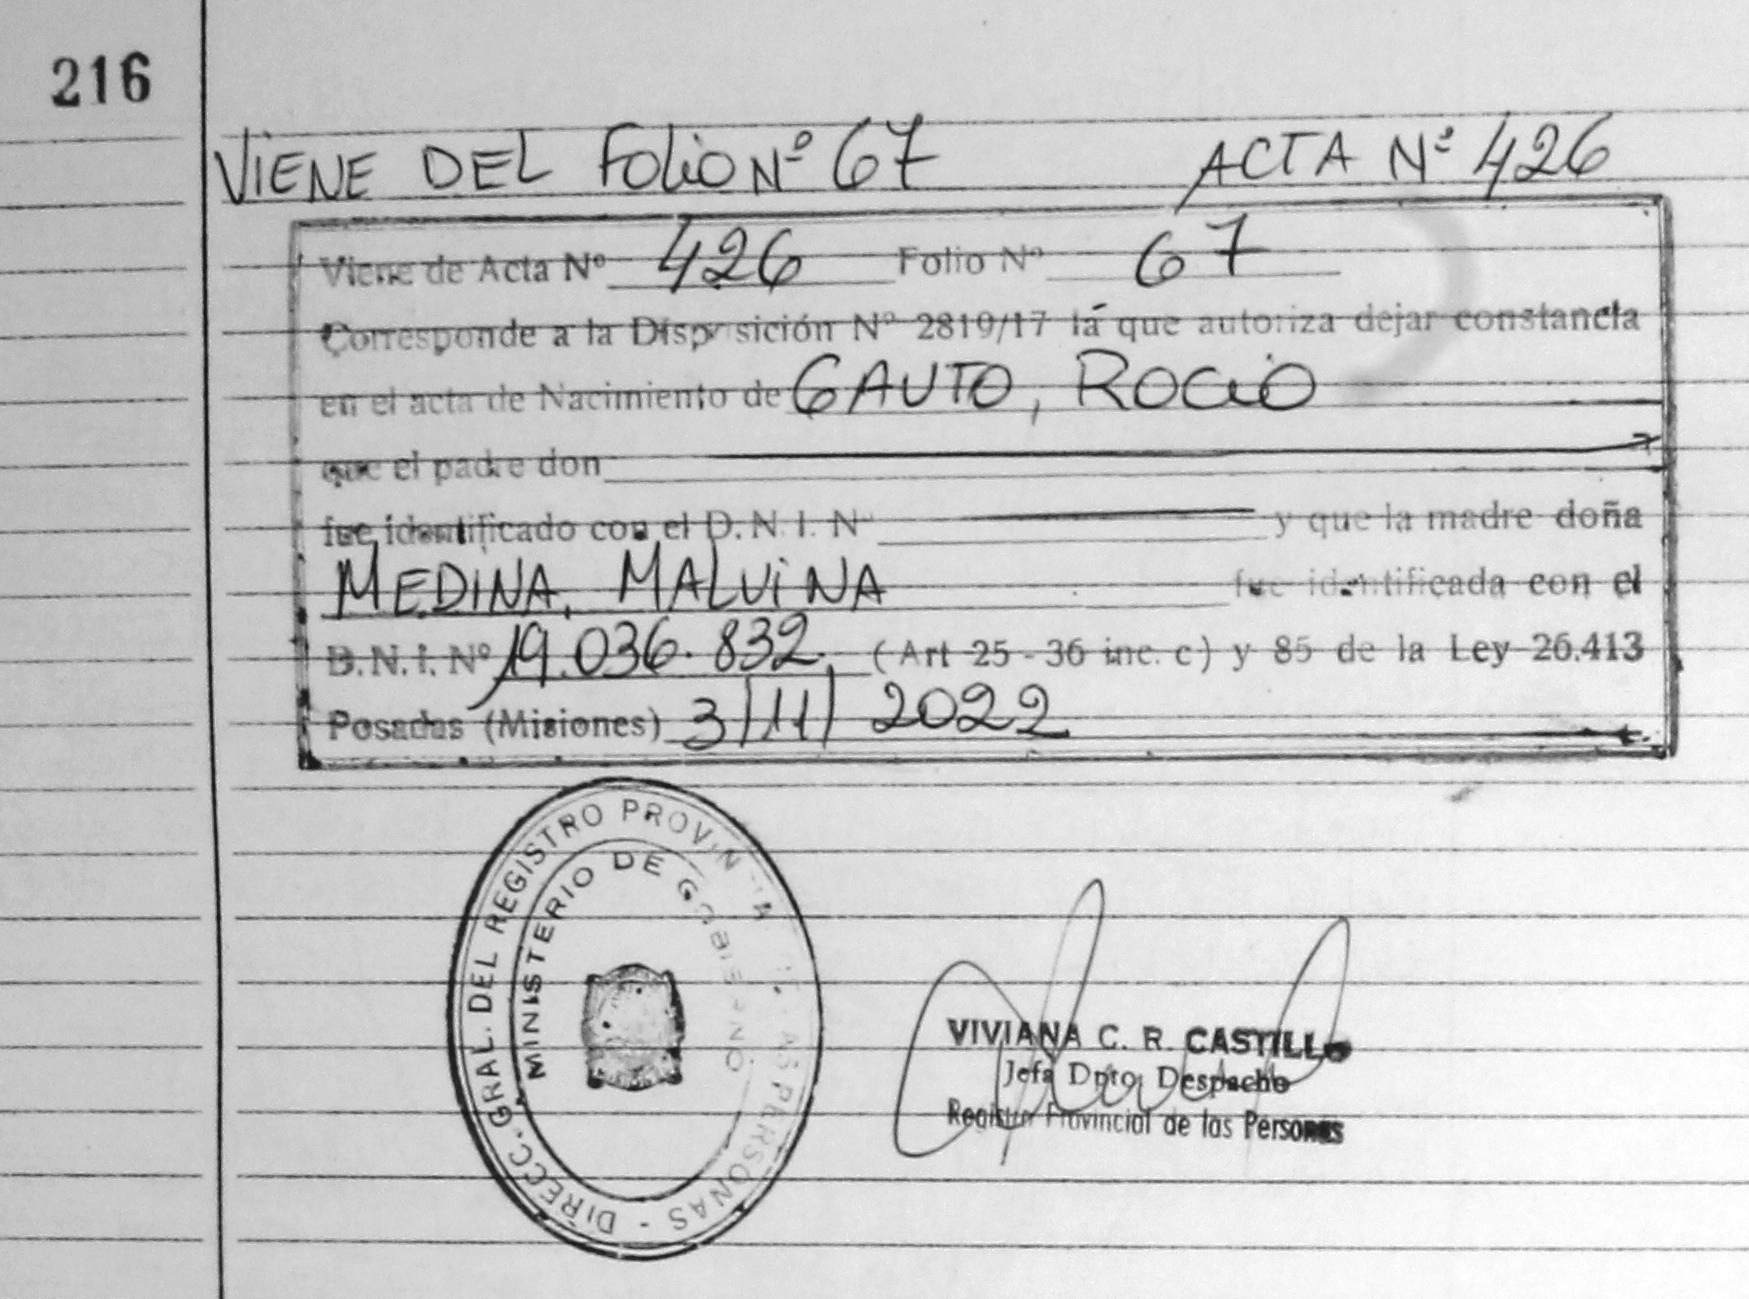 216
VIENE DEL FOLIO Nº 67 ACTA Nº 426
Viene de Acta Nº 426 Folio Nº 67
Corresponde a la Disposición Nº 2819/17 la que autoriza dejar constancia
en el acta de Nacimiento de GAUTO, ROCIO
que el padre don
fue identificado con el D.N.I. Nº y que la madre doña
MEDINA, MALVINA fue identificada con el
D.N.I. Nº 19.036.832. (Art 25 - 36 inc. c) y 85 de la Ley 26.413
Posadas (Misiones) 3/11/2022
DIRECC. GRAL. DEL REGISTRO PROVINCIAL DE LAS PERSONAS -
MINISTERIO DE GOBIERNO
VIVIANA C. R. CASTILLO
Jefa Dpto. Despacho
Registro Provincial de las Personas